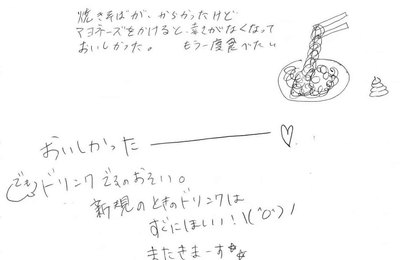 焼きそばが、からかったけど
マヨネーズをかけると、辛さがなくなって
おいしかった。 もう一度食べたい
おいしかった ――――― ♡
でも ドリンクでるのおそい。
新規のときのドリンクは
すぐにほしい!!\(^o^)/
またきまーす☆☆